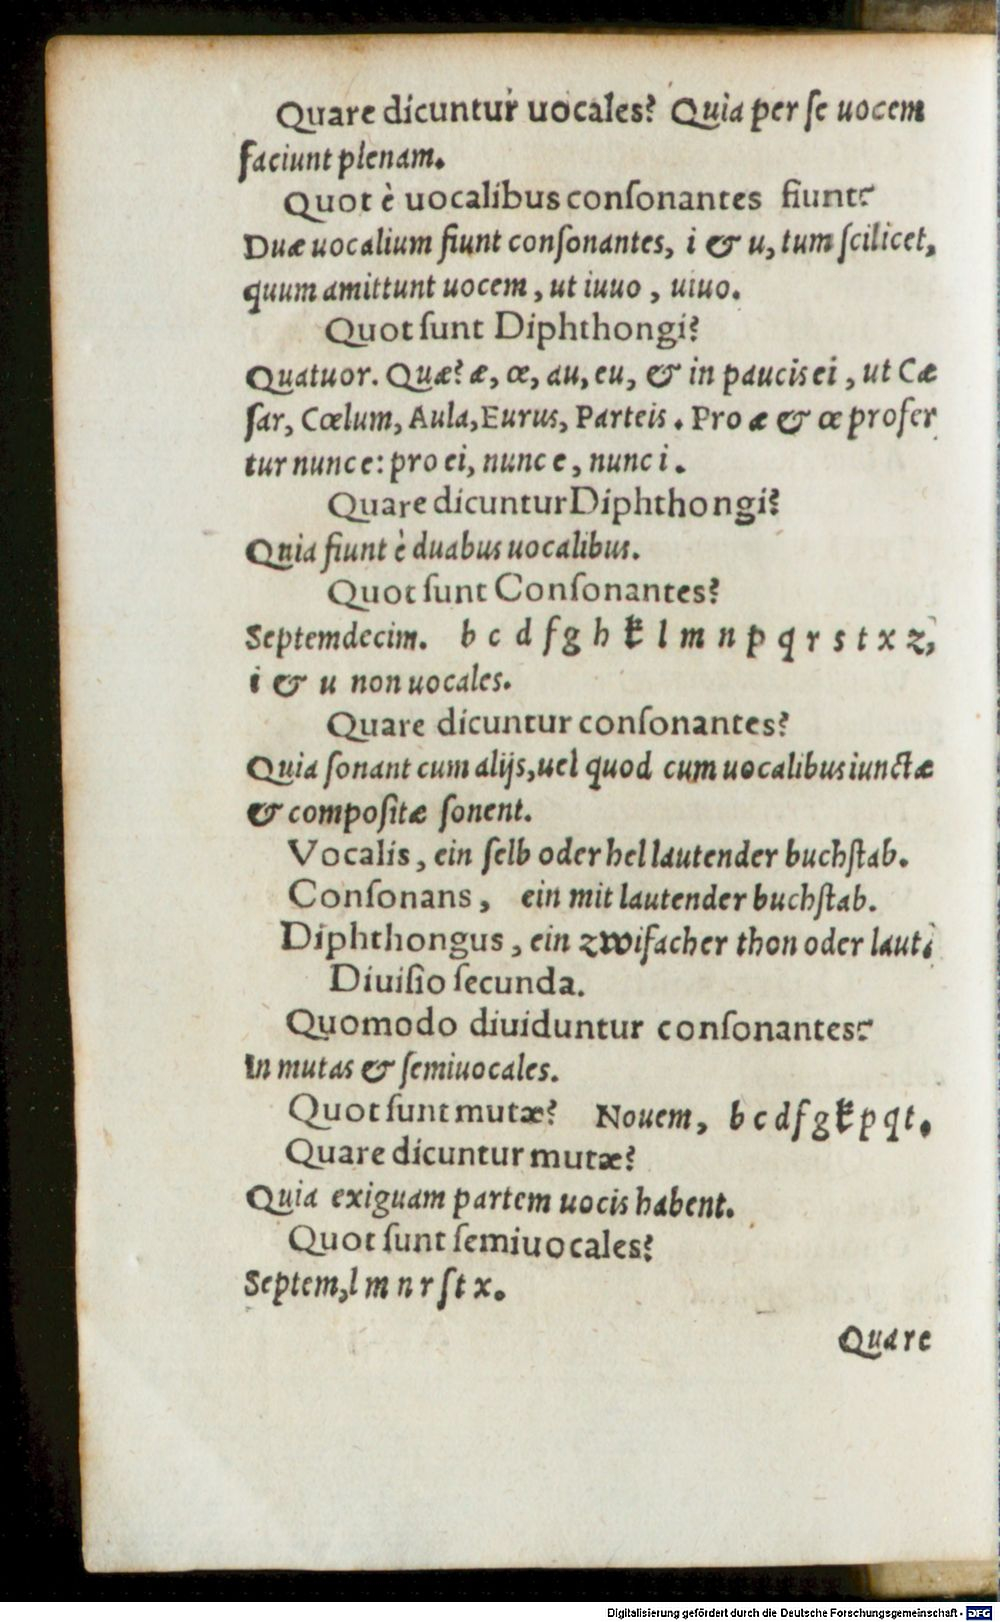 Quare dicuntur uocales? Quia per ſe uocem
faciunt plenam.
Quot è uocalibus conſonantes fiunt?
Duæ uocalium fiunt conſonantes, i & u, tum ſcilicet,
quum amittunt uocem, ut iuuo, uiuo.
Quot ſunt Diphthongi?
Quatuor. Quæ? æ, œ, au, eu, & in paucis ei, ut Cæ
ſar, Cœlum, Aula, Eurus, Parteis. Pro æ & œ profer
tur nunc e: pro ei, nunc e, nunc i.
Quare dicuntur Diphthongi?
Quia fiunt è duabus uocalibus.
Quot ſunt Conſonantes?
Septemdecim. b c d f g h k l m n p q r s t x z,
i & u non uocales.
Quare dicuntur conſonantes?
Quia ſonant cum alijs, uel quod cum uocalibus iunctæ
& compoſitæ ſonent.
Vocalis, ein ſelb oder hel lautender buchſtab.
Conſonans, ein mit lautender buchſtab.
Diphthongus, ein zwifacher thon oder laut.
Diuiſio ſecunda.
Quomodo diuiduntur conſonantes?
In mutas & ſemiuocales.
Quot ſunt mutæ? Nouem, b c d f g k p q t.
Quare dicuntur mutæ?
Quia exiguam partem uocis habent.
Quot ſunt ſemiuocales?
Septem, l m n r ſ t x.
Quare
Digitalisierung gefördert durch die Deutsche Forschungsgemeinschaft - DFG